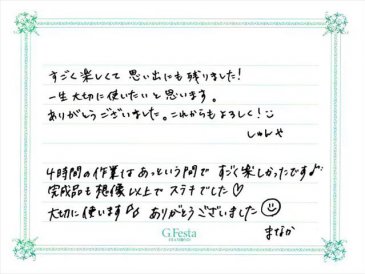 すごく楽しくて思い出にも残りました！
一生大切に使いたいと思います。
ありがとうございました。これからもよろしく！
しゅんや
4時間の作業はあっという間ですごく楽しかったです♪
完成品も想像以上でステキでした♡
大切に使います♪ ありがとうございました
まなか
G.Festa
DIAMOND